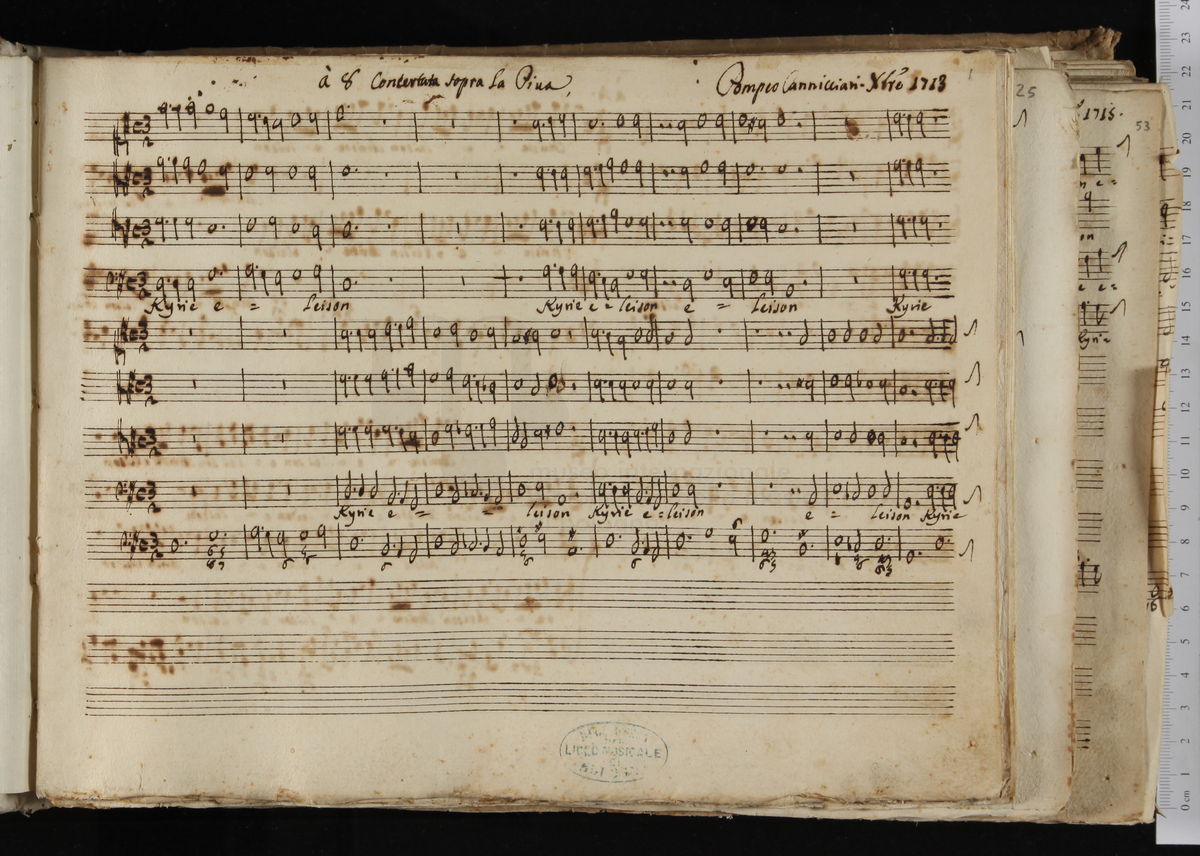 à 8 Concertata sopra La Piva
Pompeo Cannicciari Xbre 1713
1
25
1715.
53
Kyrie e = leison Kyrie e = leison e = leison Kyrie
Kyrie e = = leison Kyrie e = leison e = leison Kyrie
museo internazionale
LICEO MUSICALE
24
23
22
21
20
19
18
17
16
15
14
13
12
11
10
9
8
7
6
5
4
3
2
1
0 cm